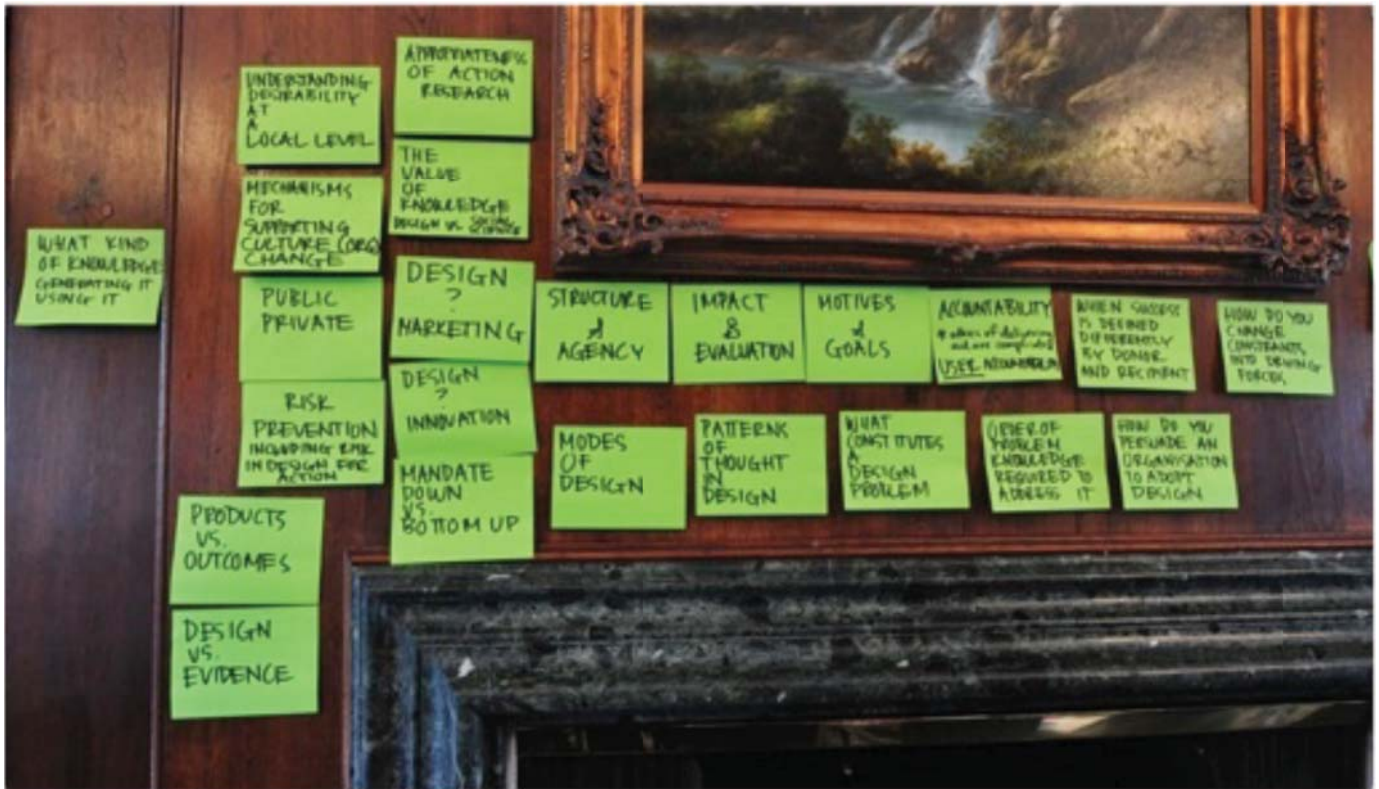 WHAT KIND
OF KNOWLEDGE
GENERATING IT
USING IT
UNDERSTANDING
DESIRABILITY
AT
A
LOCAL LEVEL
MECHANISMS
FOR
SUPPORTING
CULTURE (ORG)
CHANGE
PUBLIC
PRIVATE
RISK
PREVENTION
INCLUDING RISK
IN DESIGN FOR
ACTION
PRODUCTS
VS.
OUTCOMES
DESIGN
VS.
EVIDENCE
APPROPRIATENESS
OF ACTION
RESEARCH
THE
VALUE
OF
KNOWLEDGE
DESIGN VS. SOCIAL
SCIENCE
DESIGN
?
MARKETING
DESIGN
?
INNOVATION
MANDATE
DOWN
VS.
BOTTOM UP
STRUCTURE
&
AGENCY
IMPACT
&
EVALUATION
MOTIVES
&
GOALS
ACCOUNTABILITY
of delivering
USER
WHEN SUCCESS
IS DEFINED
DIFFERENTLY
BY DONOR
AND RECIPIENT
HOW DO YOU
CHANGE
CONSTRAINTS
INTO DRIVING
FORCES
MODES
OF
DESIGN
PATTERNS
OF
THOUGHT
IN
DESIGN
WHAT
CONSTITUTES
A
DESIGN
PROBLEM
ORDER OF
PROBLEM
KNOWLEDGE
REQUIRED TO
ADDRESS IT
HOW DO YOU
PERSUADE AN
ORGANISATION
TO ADOPT
DESIGN